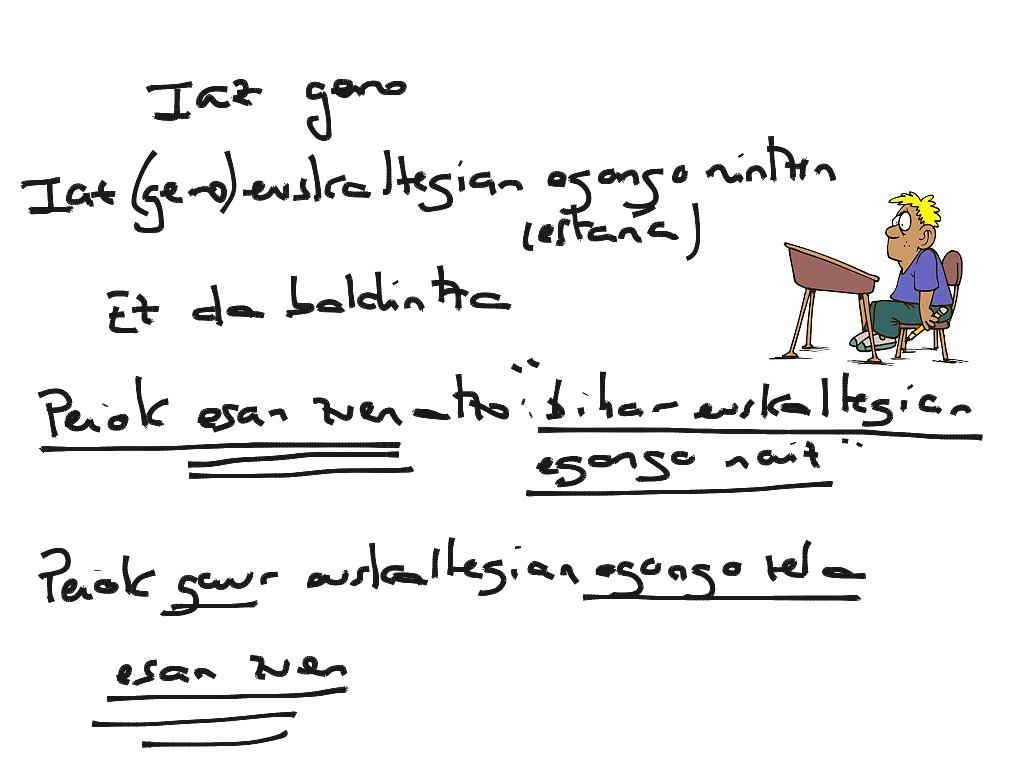 Iaz gero
Iaz (gero) euskaltegian egongo nintzen
(estana)
Ez da baldintza
Periok esan zuen atzo: "bihar euskaltegian
egongo naiz"
Periok gaur euskaltegian egongo zela
esan zuen